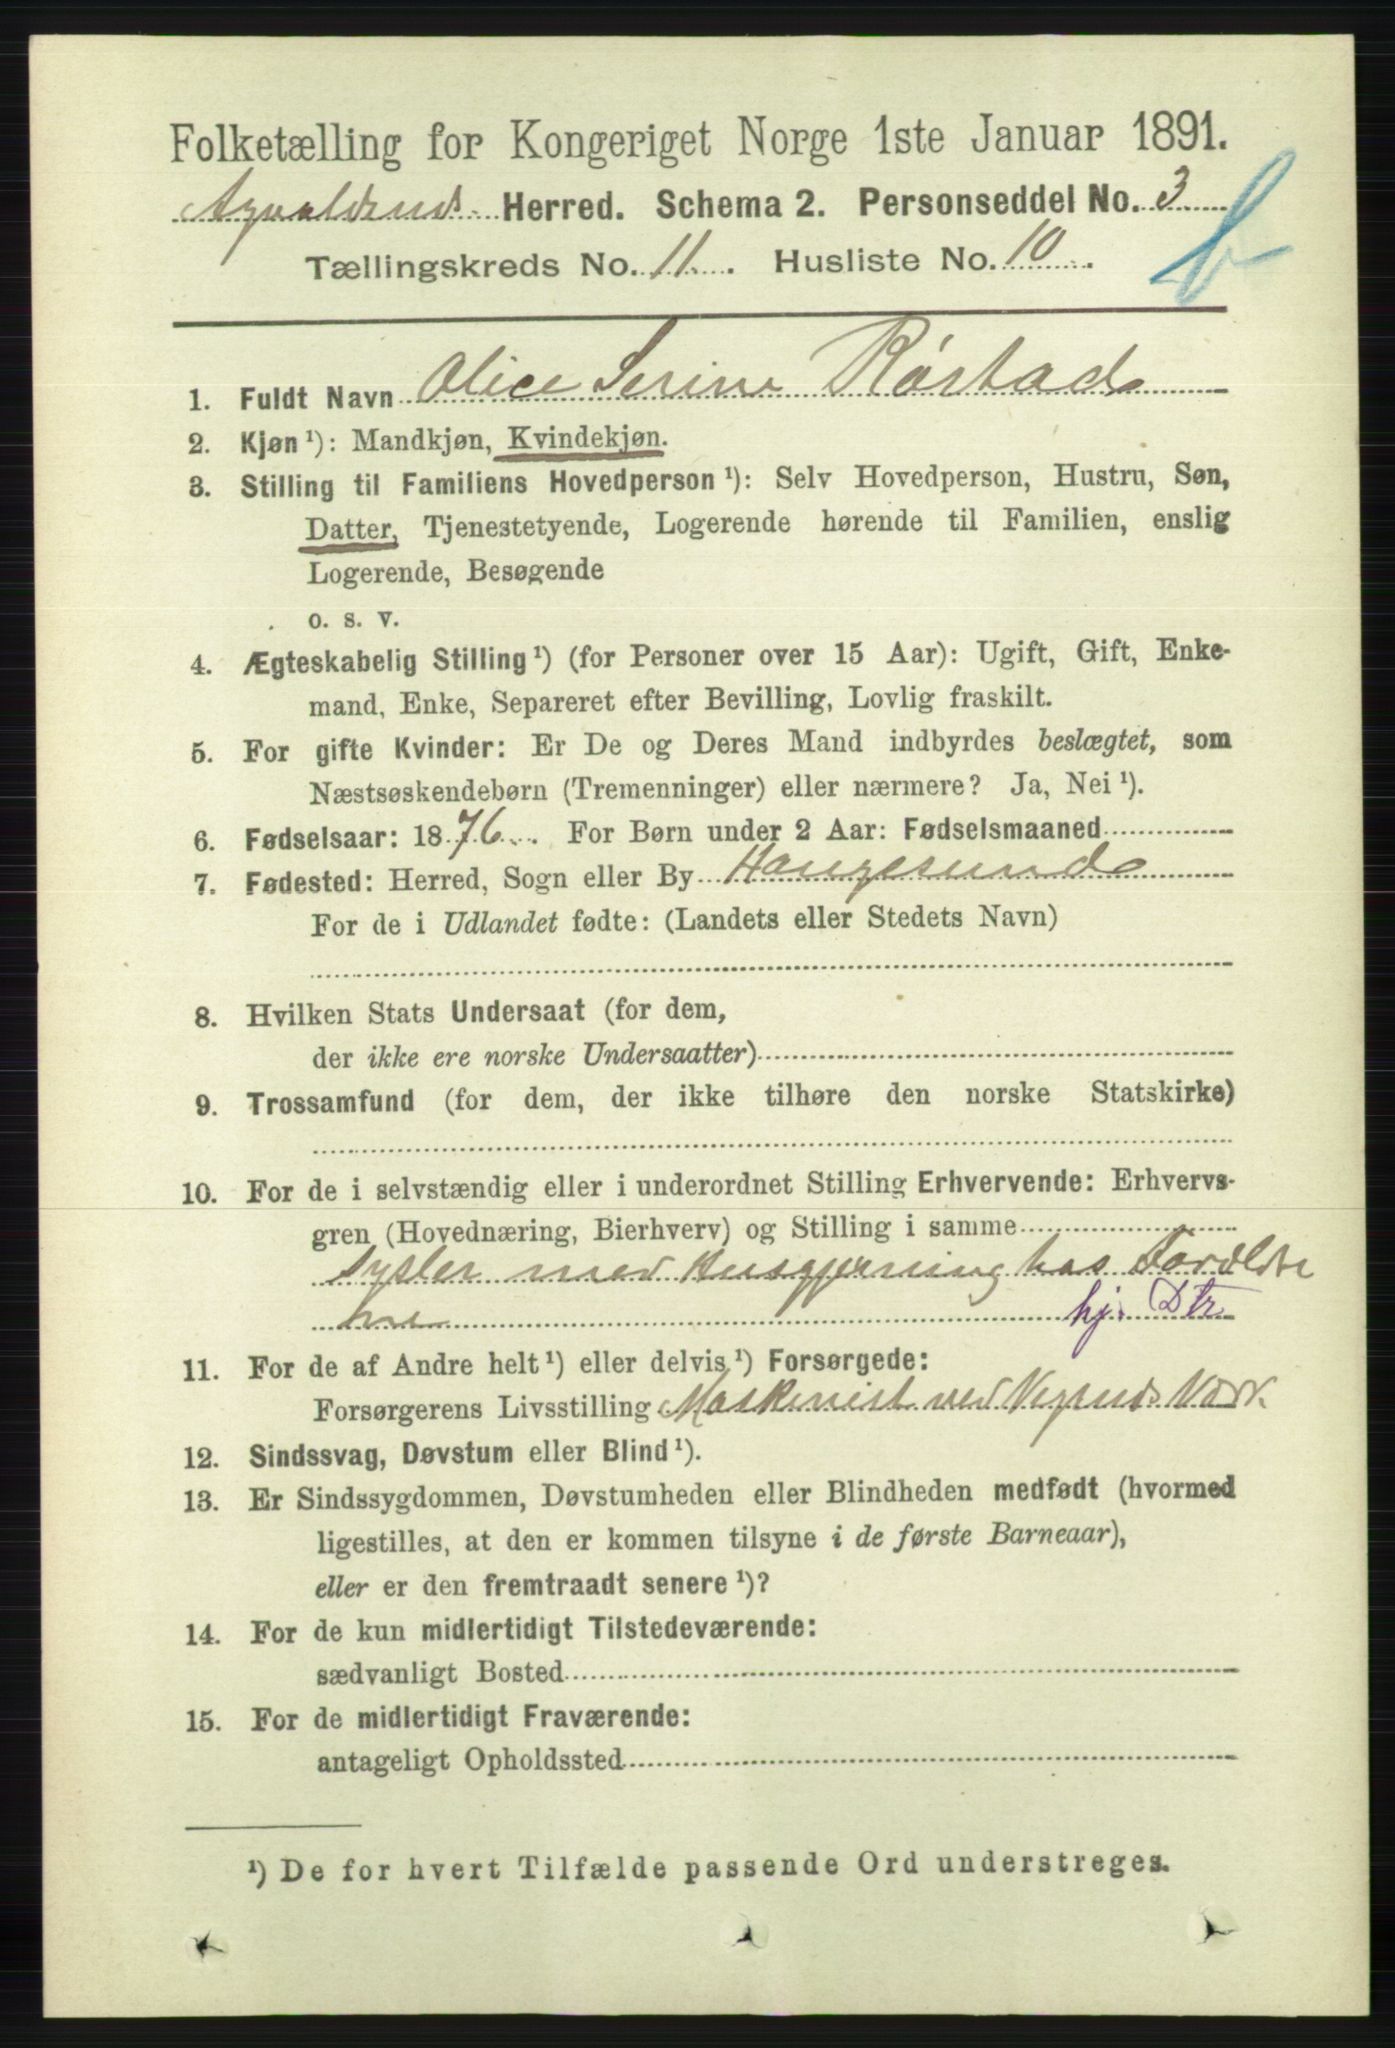 Folketælling for Kongeriget Norge 1ste Januar 1891.
Herred. Schema 2. Personseddel No. 3
Tællingskreds No. 11. Husliste No. 10
b
1. Fuldt Navn Olice Serine Røstad
2. Kjøn ¹): Mandkjøn, Kvindekjøn.
3. Stilling til Familiens Hovedperson ¹): Selv Hovedperson, Hustru, Søn,
Datter, Tjenestetyende, Logerende hørende til Familien, enslig
Logerende, Besøgende
o. s. v.
4. Ægteskabelig Stilling ¹) (for Personer over 15 Aar): Ugift, Gift, Enke-
mand, Enke, Separeret efter Bevilling, Lovlig fraskilt.
5. For gifte Kvinder: Er De og Deres Mand indbyrdes beslægtet, som
Næstsøskendebørn (Tremenninger) eller nærmere? Ja, Nei ¹).
6. Fødselsaar: 1876. For Børn under 2 Aar: Fødselsmaaned
7. Fødested: Herred, Sogn eller By Haugesund
For de i Udlandet fødte: (Landets eller Stedets Navn)
8. Hvilken Stats Undersaat (for dem,
der ikke ere norske Undersaatter)
9. Trossamfund (for dem, der ikke tilhøre den norske Statskirke)
10. For de i selvstændig eller i underordnet Stilling Erhvervende: Erhvervs-
gren (Hovednæring, Bierhverv) og Stilling i samme
Sysler med Husgjerning hos Foreldre
ne hj. Dtr.
11. For de af Andre helt ¹) eller delvis ¹) Forsørgede:
Forsørgerens Livsstilling Maskinist ved Vigsnds Værk
12. Sindssvag, Døvstum eller Blind ¹).
13. Er Sindssygdommen, Døvstumheden eller Blindheden medfødt (hvormed
ligestilles, at den er kommen tilsyne i de første Barneaar),
eller er den fremtraadt senere ¹)?
14. For de kun midlertidigt Tilstedeværende:
sædvanligt Bosted
15. For de midlertidigt Fraværende:
antageligt Opholdssted
¹) De for hvert Tilfælde passende Ord understreges.